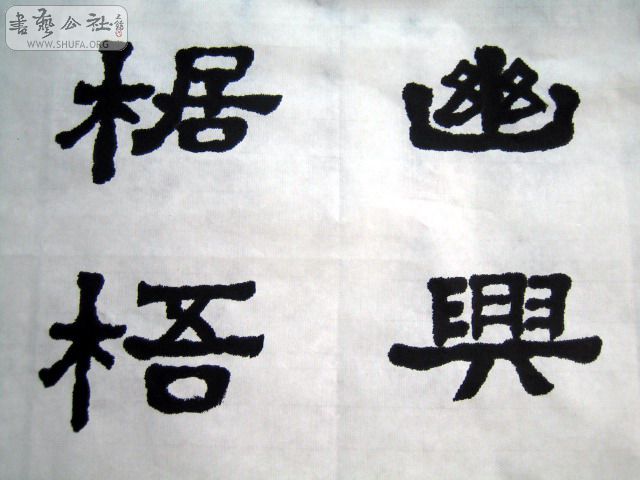 幽興
椐梧
書藝公社
WWW.SHUFA.ORG